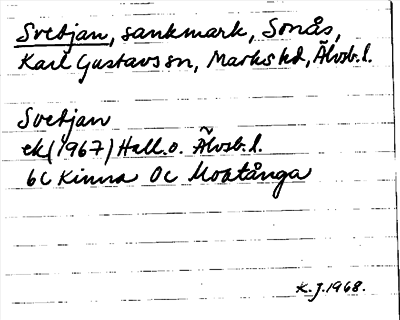 Svetjan, sankmark, Sonås,
Karl Gustavs sn, Marks hd, Älvsb. l.
Svetjan
ek (1967) Hall. o. Älvsb. l.
6C Kinna 0c Moatånga
K. J. 1968.